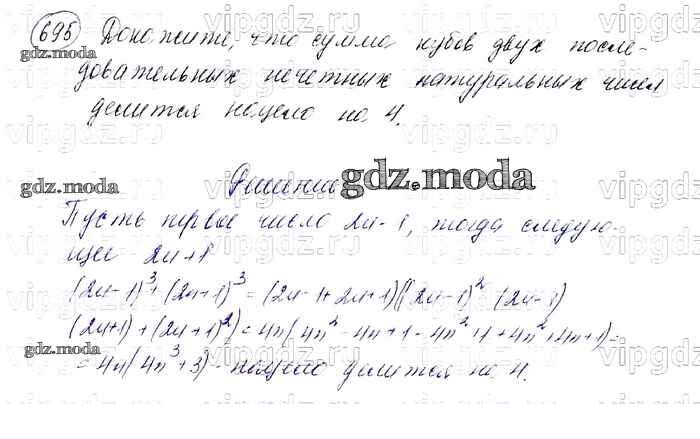 695 Докажите, что сумма кубов двух после-
gdz.moda
довательных нечетных натуральных чисел
делится нацело на 4.
Решение
gdz.moda
gdz.moda
Пусть первое число 2n-1, тогда следую-
щее 2n+1
(2n-1)³+(2n+1)³=(2n-1+2n+1)((2n-1)²-(2n-1)
(2n+1)+(2n+1)²)=4n(4n²-4n+1-4n²+1+4n²+4n+1)=
gdz.moda
=4n(4n³+3) - нацело делится на 4.
gdz.moda